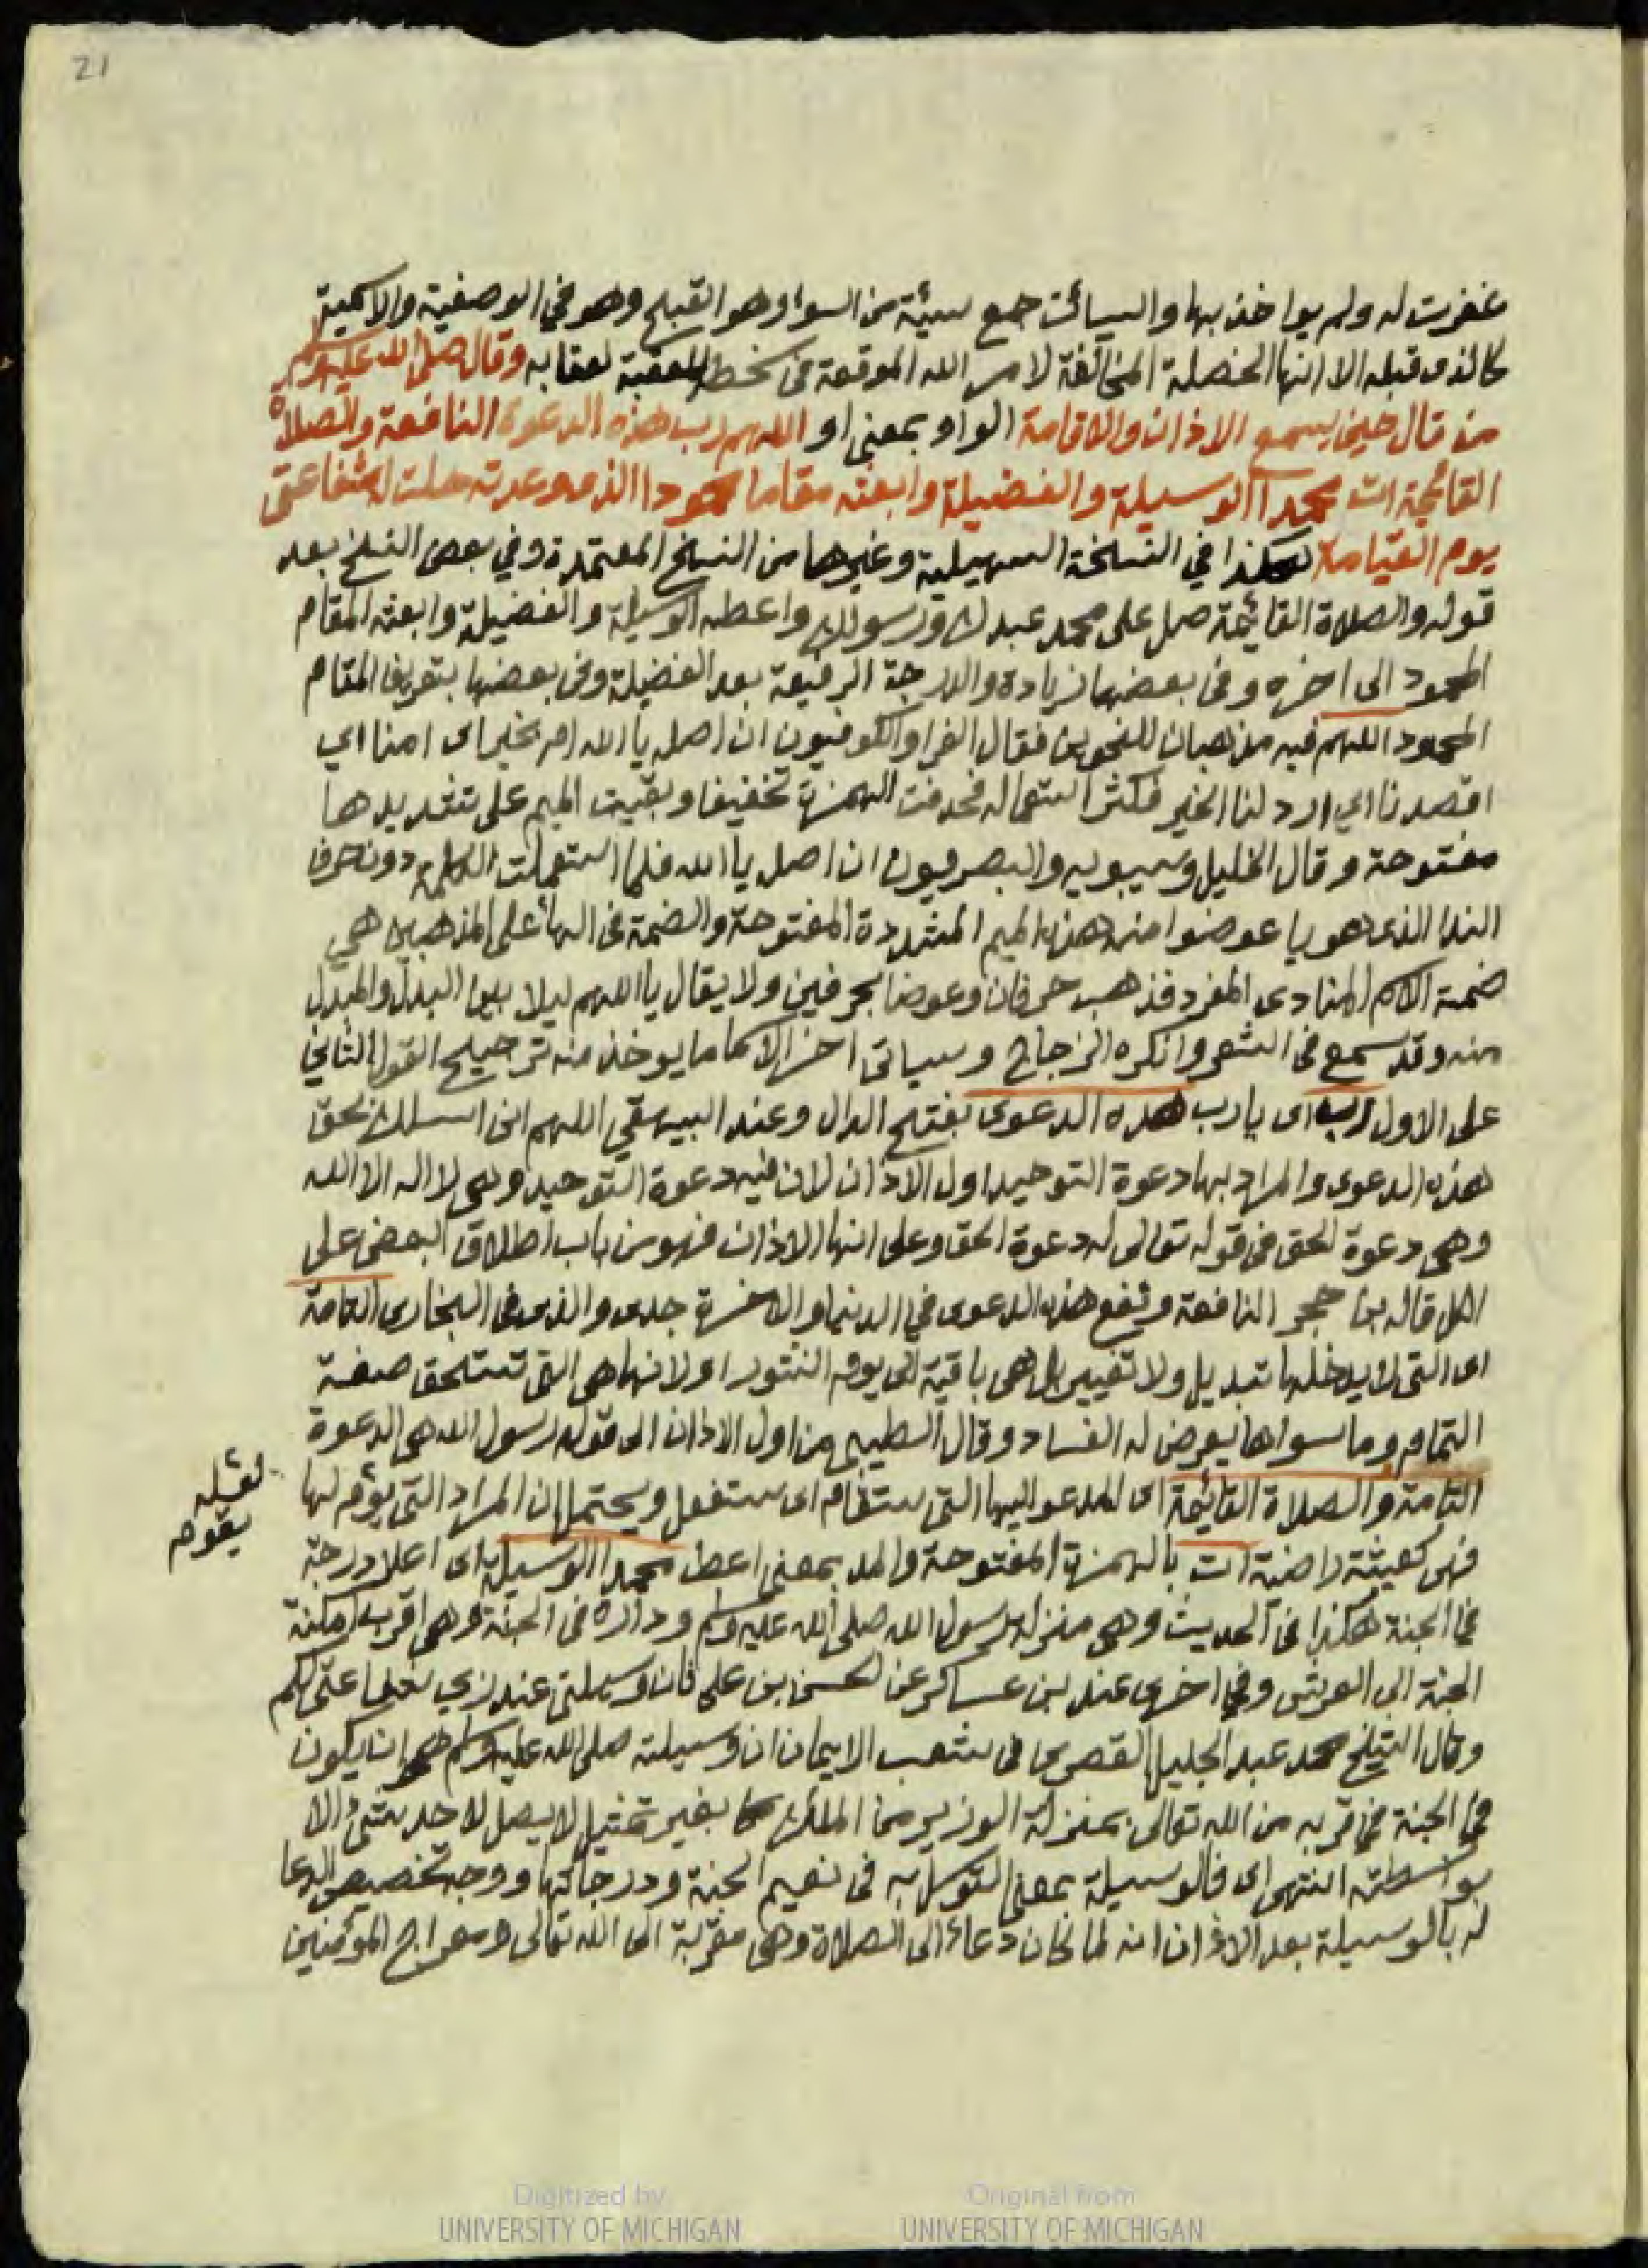 21
غفرت له ولم يواخذ بها والسيائت جمع سيئة من السواو هو القبح وهو في الوصفية والاسمية
كالذى قبله الا انها الخصلة المخالفة لامر الله الموقعة فى سخط المعقبة لعقابه وقال صلى الله عليه وسلم
من قال حين يسمع الاذان والاقامة الواو بمعنى او اللهم رب هذه الدعوة النافعة والصلاة
القائمة ات محمدا الوسيلة والفضيلة وابعثه مقاما محمودا الذى وعدته حلت له شفاعتى
يوم القيامة هكذا في النسخة السهيلية وغيرها من النسخ المعتمدة وفي بعض النسخ بعد
قوله والصلاة القائمة صل على محمد عبدك ورسولك واعطه الوسيلة والفضيلة وابعثه المقام
المحمود الى اخره وفى بعضها زيادة والدرجة الرفيعة بعد الفضيلة وفى بعضها بتعريف المقام
المحمود اللهم فيه مذهبان للنحويين فقال الفرا والكوفيون ان اصله يا الله ام بخير اى امنا اي
اقصدنا اي ارد لنا الخير فكثر استعماله فحذفت الهمزة تخفيفا وبقيت الميم على تشديدها
مفتوحة وقال الخليل وسيبويه والبصريون ان اصله يا الله فلما استعملت الكلمة دون حرف
الندا الذى هو يا عوضوا منه هذه الميم المشددة المفتوحة والضمة فى الهاء على المذهبين هي
ضمة الاسم المنادى المفرد فذهب حرفان وعوضا بحرفين ولا يقال يا اللهم ليلا بين البدل والمبدل
منه وقد سمع فى الشعر وانكره الزجاج وسياتى اخر الاسما ما يوخذ منه ترجيح القول الثاني
على الاول رب اى يارب هذه الدعوى بفتح الدال وعند البيهقي اللهم انى اسالك بحق
هذه الدعوى والمراد بها دعوة التوحيد اول الاذان لان فيه دعوة التوحيد وهى لا اله الا الله
وهى دعوة الحق فى قوله تعالى له دعوة الحق وعلى انها الاذان فهو من باب اطلاق البعض على
الكل قاله بن حجر النافعة ونفع هذه الدعوى في الدنيا والاخرة جلى والذى فى البخارى التامة
اى التى لا يدخلها تبديل ولا تغيير بل هى باقية الى يوم النشور او لانها هى التى تستحق صفة
التمام وما سواها يعرض له الفساد وقال الطيبى من اول الاذان الى قوله رسول الله هى الدعوة
التامة والصلاة القائمة اى المدعو اليها التى ستقام اى ستفعل ويحتمل ان المراد التى يؤم لها
لعله
يقوم
فهى كعيشة راضية ات بالهمزة المفتوحة والمد بمعنى اعط محمدا الوسيلة اى اعلا درجة
في الجنة هكذا فى الحديث وهى منزلة رسول الله صلى الله عليه وسلم وداره فى الجنة وهى اقرب امكنة
الجنة الى العرش وفي اخرى عند بن عساكر عن الحسن بن على فان وسيلتى عند ربي شفاعتى لكم
وقال الشيخ محمد عبد الجليل القصرى فى شعب الايمان ان وسيلته صلى الله عليه وسلم هى ان يكون
في الجنة في قربه من الله تعالى بمنزلة الوزير من الملك بغير تمثيل لا يصل لاحد شئ الا
بواسطته انتهى اى فالوسيلة بمعنى التوسل به فى نعيم الجنة ودرجاتها ووجه تخصيص الدعا
له بالوسيلة بعد الاذان انه لما كان دعاء الى الصلاة وهى مقربة الى الله تعالى ومعراج المؤمنين
Digitized by
UNIVERSITY OF MICHIGAN
Original from
UNIVERSITY OF MICHIGAN